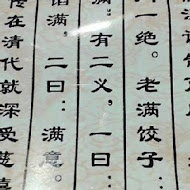 一绝。老满饺子:
满"有二义,一曰:
馅满,二曰:满意。
在清代就深受慈